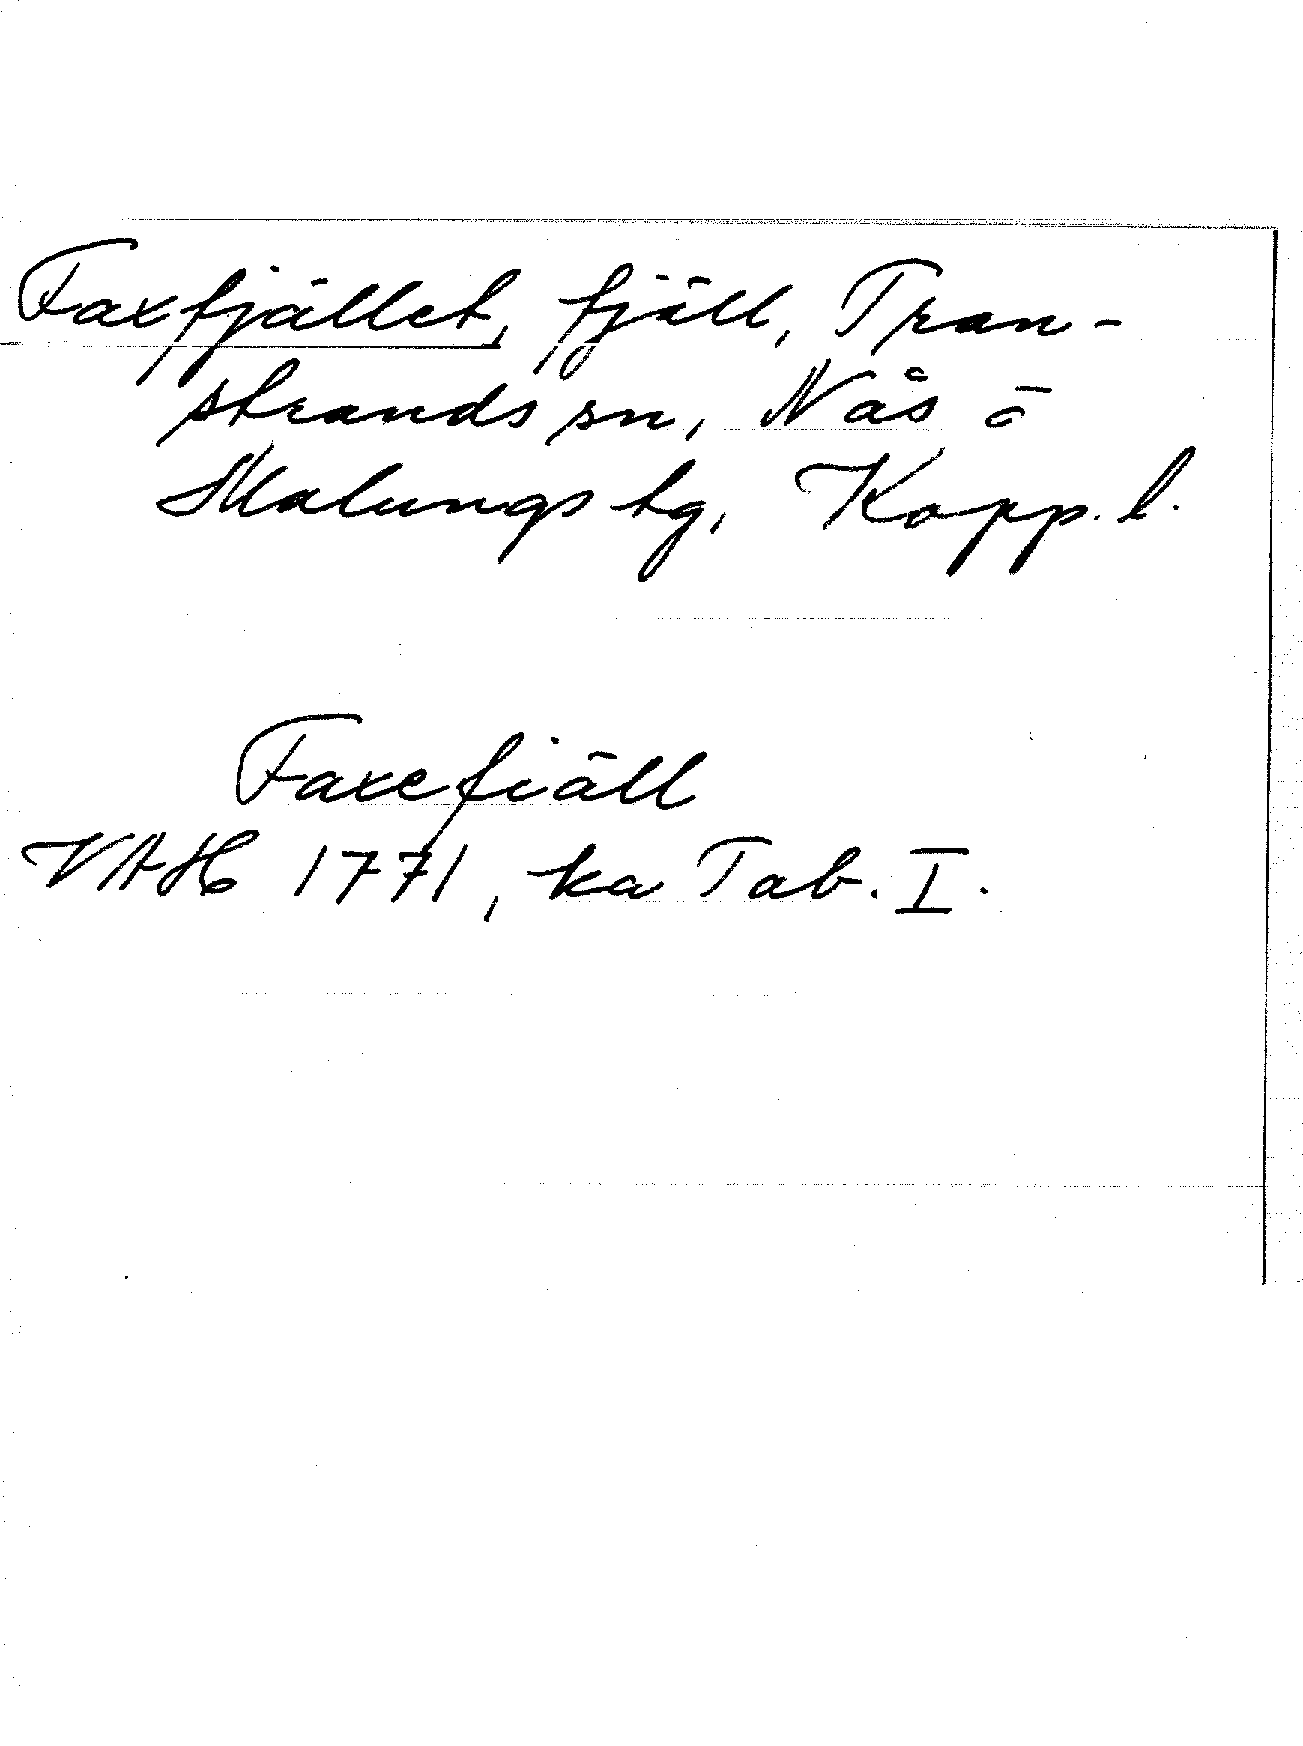 Faxfjället, fjäll, Tran-
strands sn, Nås o
Malungs tg, Kopp. l.
Faxefiäll
VAH 1771, ka Tab. I.